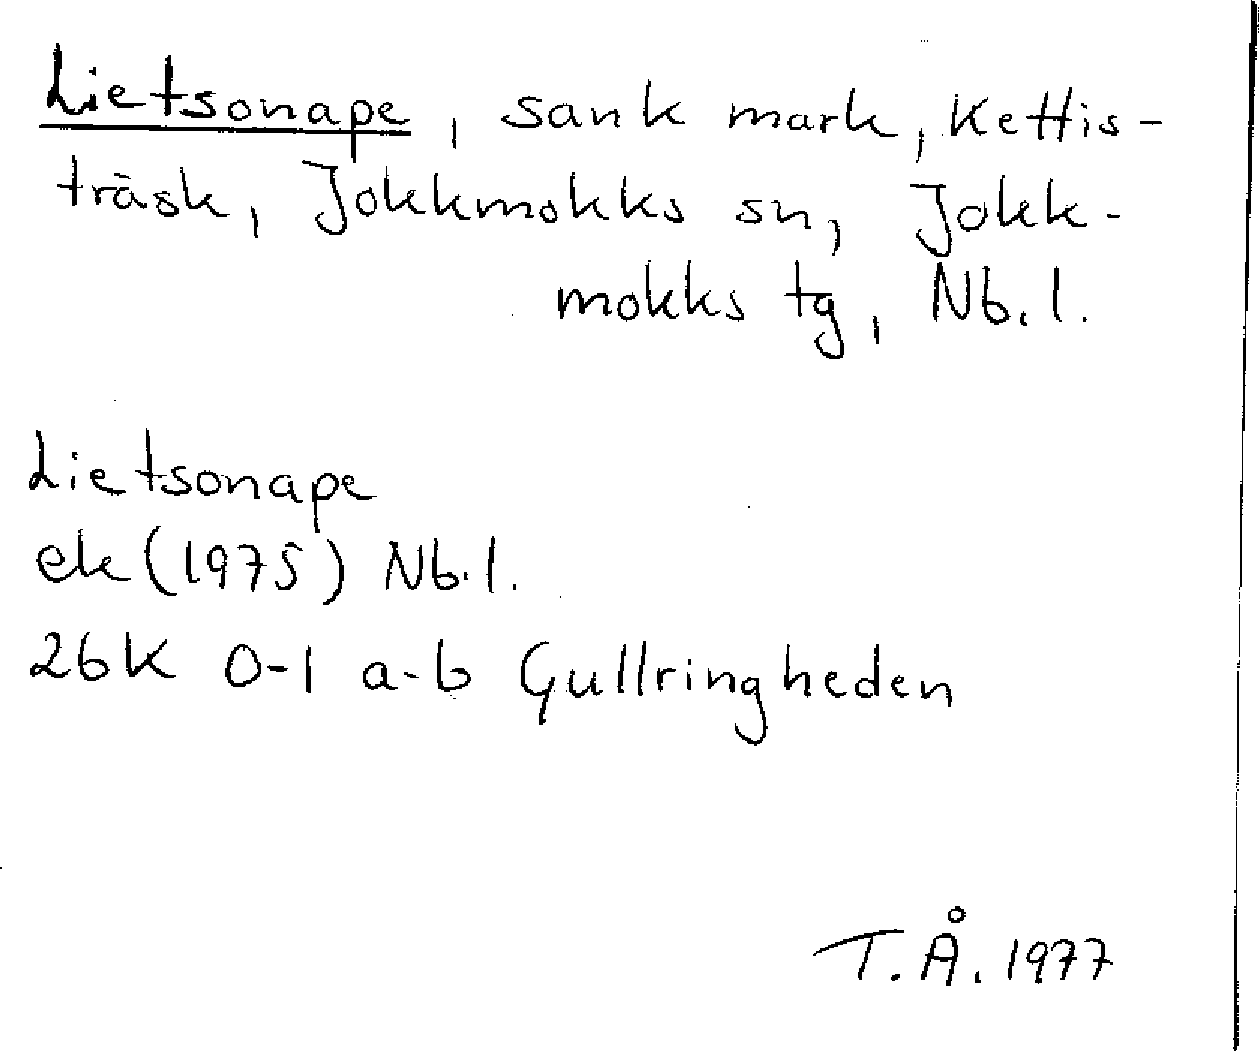 Lietsonape, sank mark, Kettis-
träsk, Jokkmokks sn, Jokk-
mokks tg, Nb. l.
Lietsonape
ek (1975) Nb. l.
26K 0-1 a-b Gullringheden
T.Å. 1977